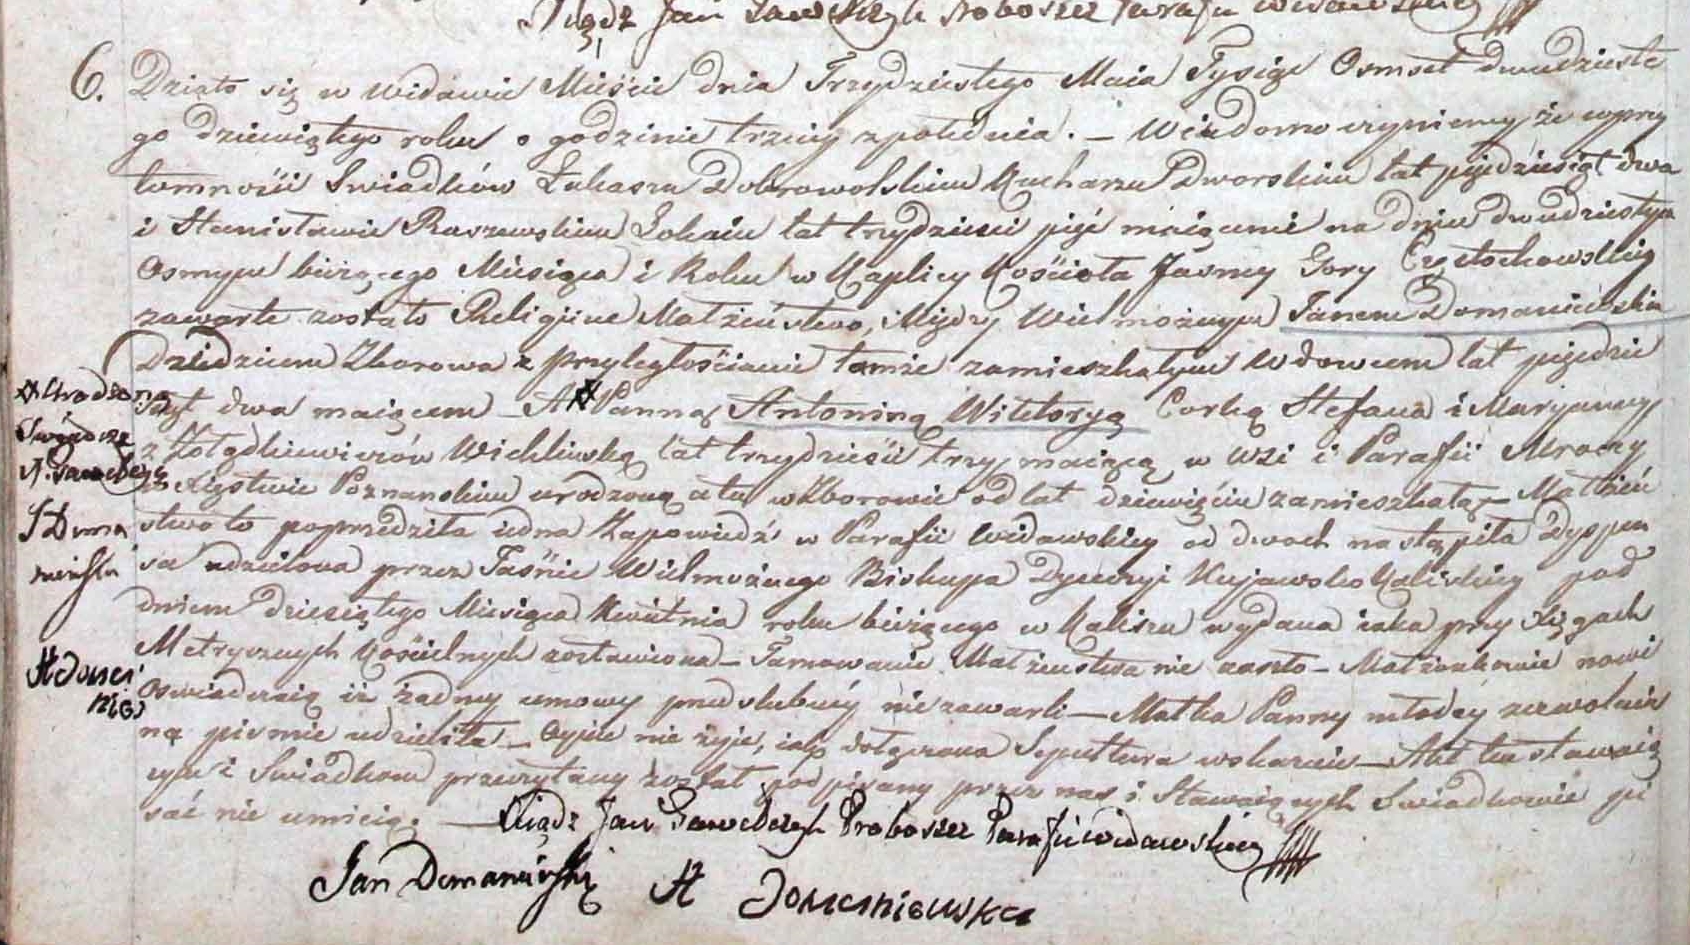 Xiądz Jan Gawełczyk Proboszcz Parafii Widawskiey
6. Działo się w Widawie Mieście dnia Trzydziestego Maia Tysiąc Osmset dwudzieste
go dziewiątego roku o godzinie trzeciy zpołudnia. – Wiadomo czyniemy że wprzy
tomności Swiadków Łukasza Dobrowolskim Kucharzu Dworskim lat pięćdziesiąt dwa
i Stanisławie Raszewskim Lokaiu lat trzydzieści pięć maiącemi na dniu dwudziestym
Osmym bieżącego Miesiąca i Roku w Kaplicy Kościoła Jasney Gory Częstochowskiey
zawarte zostało Religijne Małżeństwo, Między Wielmożnym Janem Domaniewskim
Dziedzicem Zborowa z przyległościami tamże zamieszkałym Wdowcem lat pięćdzie
siąt dwa maiącem – A # Panną Antoniną Wiktoryą Corką Stefana i Maryanny
z Żołądkiewiczów Wichlinską lat trzydzieści trzy maiącą w Wsi i Parafii Mroczy
w Xięstwie Poznanskim urodzoną a tu w Zborowie od lat dziewięciu zamieszkałą – Małżeń
stwo to poprzedziła iedna Zapowiedź w Parafii Widawskiey od dwoch nastąpiła Dyspen
sa udzielona przez Jaśnie Wielmożnego Biskupa Dyecezyi Kujawsko Kaliskiey pod
dniem dziesiątego Miesiąca Kwietnia roku bieżącego w Kaliszu wydana iaka przy Xięgach
Metrycznych Kościelnych zostawiona – Tamowanie Małżeństwa nie zaszło – Małżonkowie nowi
Oswiadczaią iż żadney umowy przedslubney nie zawarli – Matka Panny młodey zezwolenie
na pismie udzieliła – Oyciec nie żyje, iak dołączona Sepultura wskazuie – Akt ten stawaią
cym i Swiadkom przeczytany został podpisany przez nas i Stawaiących Swiadkowie pi
sać nie umieią. – Xiądz Jan Gawełczyk Proboszcz Parafii Widawskiey
Jan Domaniewski A Domeniewska
# Urodzoną
Swiadczę
J. Gawełczyk
J Doma
niewski
A Domei
nie